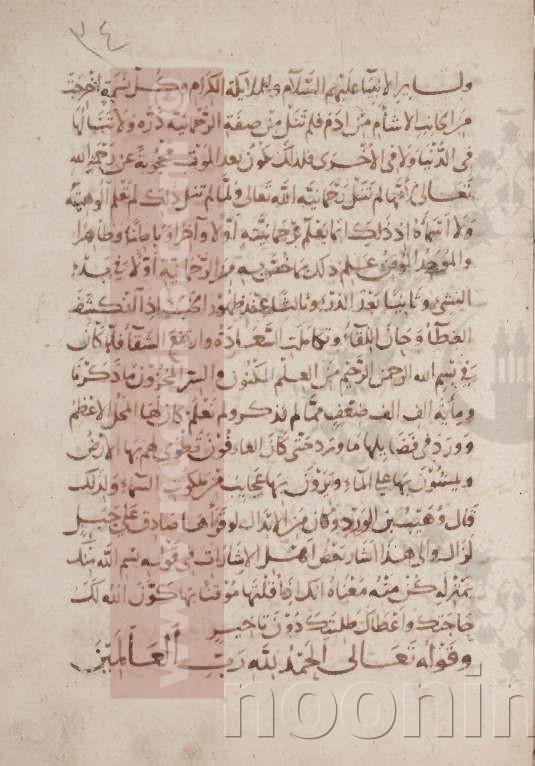 ٣٤
ولساير الانبيا عليهم السلام وللملايكة الكرام وكل نسمة اخرجت
من الجانب الاشام من ادم فلم تنل من صفة الرحمانية ذره ولا تنالها
في الدنيا ولا في الاخرى فلذلك تكون بعد الموقف محجوبة عن رحمة الله
تعالى لانها لم تنل رحمانية الله تعالى ولما لم تنل ذلك لم تعلم الوهيته
ولا اسماه اذ ذلك انما يعلم برحمانيته اولا واخرا وباطنا وظاهرا
والموحد المومن علم ذلك بما خصص به من الرحمانية اولا في بدء
النشئ وثانيا بعد الذر وثالثا عند ظهور الحجب اذا انكشف
الغطاء وحان اللقاء وتكاملت السعاده وارتفع الشقا فلما كان
في بسم الله الرحمن الرحيم من العلم المكنون والسر المخزون ما ذكرنا
ومايه الف الف ضعف مما لم يذكر ولم نعلم كان لها المحل الاعظم
وورد في فضايلها ما ورد حتى كان العارفون تطوى لهم بها الارض
ويمشون بها على الماء ويرون بها عجايب من ملكوت السماء ولذلك
قال وهيب بن الورد وكان من الابدال لو قراها صادق على جبل
لزال والى هذا اشار بعض اهل الاشارات في قوله بسم الله منك
بمنزله كن منه معناه انك اذا قلتها موقنا بها كون الله لك
حاجتك واعطاك طلبتك دون تاخير
وقوله تعالى الحمد لله رب العالمين
www.
noonin